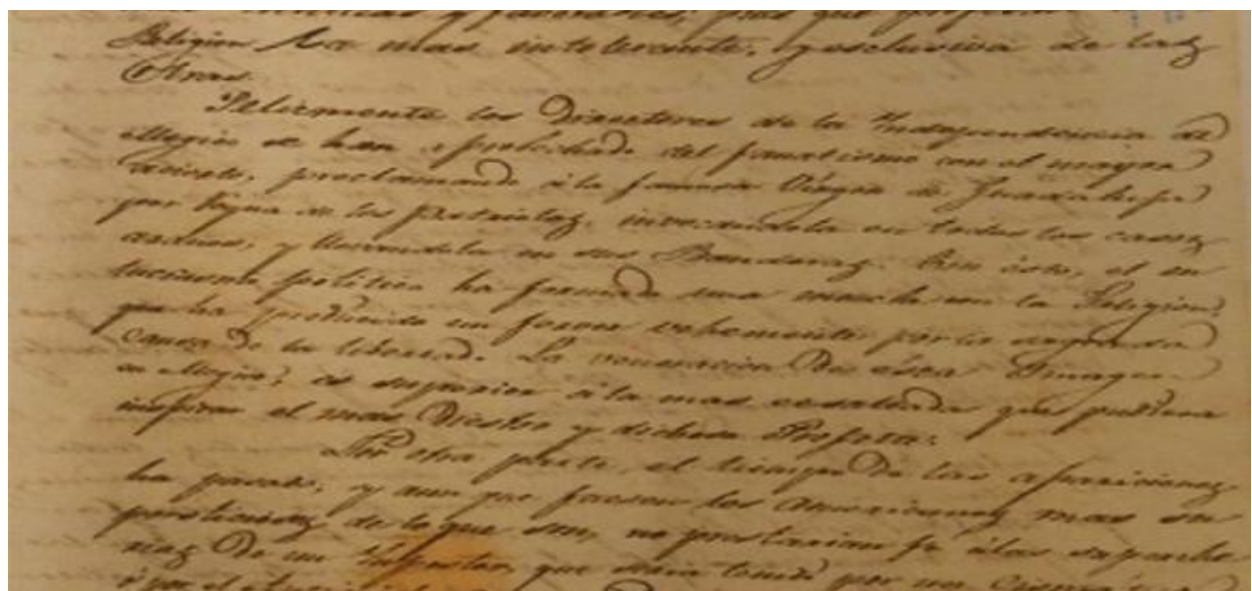 Religion la mas intolerante, y esclusiva de las
Otras.
Felizmente los Directores de la Independencia de
Megico se han aprobechado del fanatismo con el mayor
acierto, proclamando á la famosa Virgen de Guadalupe
por Reyna de los Patriotas, invocandola en todos los casos
arduos, y llevandola en sus Banderas. Con ésto, el en
tuciasmo politico ha formado una mescla con la Religion,
que ha producido un fervor vehemente por la sagrada
causa de la libertad. La veneracion de ésta Ymagen
en Megico, es superior á la mas exsaltada que pudiera
inspirar el mas Diestro y dichoso Profeta.
Por otra parte, el tiempo de las apariciones
ha pasado, y aun que fuesen los Americanos mas su
persticiosos de lo que son, no prestarian fe á las superche
rias de un Ympostor, que seria tenido por un
ó por el